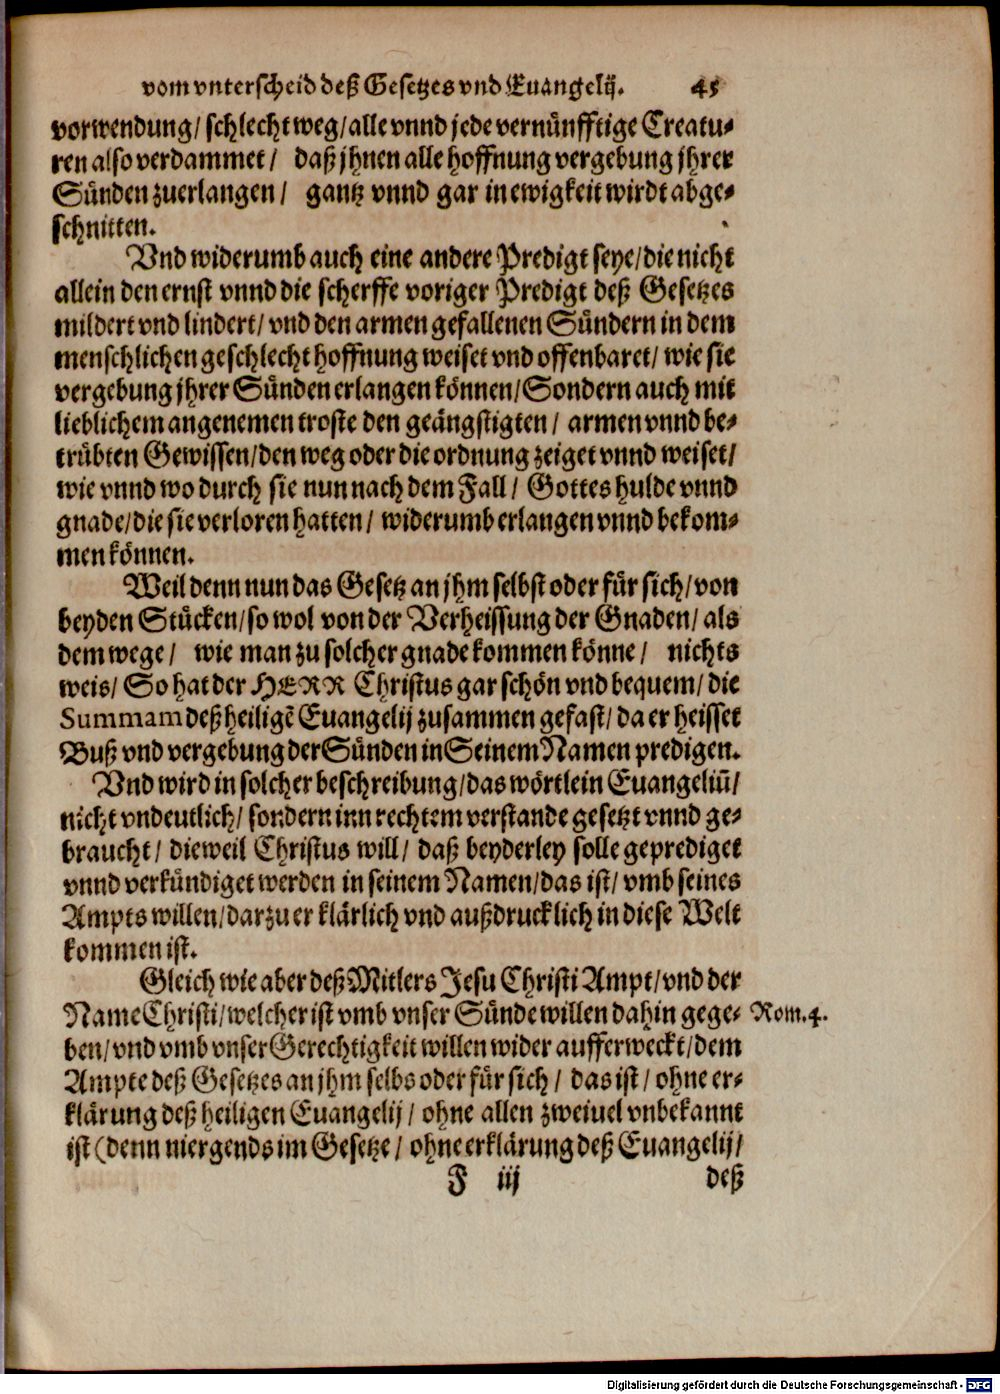 vom vnterscheid deß Gesetzes vnd Euangelij. 45
vorwendung/ schlecht weg/ alle vnnd jede vernünfftige Creatu-
ren also verdammet/ daß jhnen alle hoffnung vergebung jhrer
Sünden zuerlangen/ gantz vnnd gar in ewigkeit wirdt abge-
schnitten.
Vnd widerumb auch eine andere Predigt seye/ die nicht
allein den ernst vnnd die scherffe voriger Predigt deß Gesetzes
mildert vnd lindert/ vnd den armen gefallenen Sündern in dem
menschlichen geschlecht hoffnung weiset vnd offenbaret/ wie sie
vergebung jhrer Sünden erlangen können/ Sondern auch mit
lieblichem angenemen troste den geängstigten/ armen vnnd be-
trübten Gewissen/ den weg oder die ordnung zeiget vnnd weiset/
wie vnnd wo durch sie nun nach dem Fall/ Gottes hulde vnnd
gnade/ die sie verloren hatten/ widerumb erlangen vnnd bekom-
men können.
Weil denn nun das Gesetz an jhm selbst oder für sich/ von
beyden Stücken/ so wol von der Verheissung der Gnaden/ als
dem wege/ wie man zu solcher gnade kommen könne/ nichts
weis/ So hat der HERR Christus gar schön vnd bequem/ die
Summam deß heiligẽ Euangelij zusammen gefast/ da er heisset
Buß vnd vergebung der Sünden in Seinem Namen predigen.
Vnd wird in solcher beschreibung/ das wörtlein Euangeliũ/
nicht vndeutlich/ sondern inn rechtem verstande gesetzt vnnd ge-
braucht/ dieweil Christus will/ daß beyderley solle geprediget
vnnd verkündiget werden in seinem Namen/ das ist/ vmb seines
Ampts willen/ darzu er klärlich vnd außdrucklich in diese Welt
kommen ist.
Gleich wie aber deß Mitlers Jesu Christi Ampt/ vnd der
Name Christi/ welcher ist vmb vnser Sünde willen dahin gege- Rom. 4.
ben/ vnd vmb vnser Gerechtigkeit willen wider aufferweckt/ dem
Ampte deß Gesetzes an jhm selbs oder für sich/ das ist/ ohne er-
klärung deß heiligen Euangelij/ ohne allen zweiuel vnbekannt
ist (denn niergends im Gesetze/ ohne erklärung deß Euangelij/
F iij deß
Digitalisierung gefördert durch die Deutsche Forschungsgemeinschaft - DFG